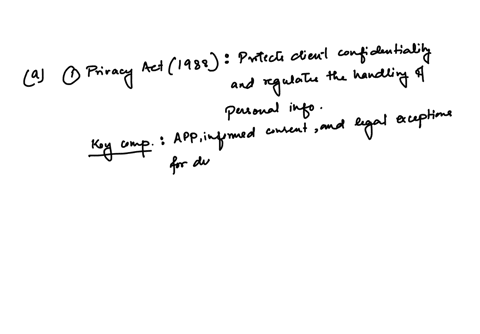 (a) ① Privacy Act (1988) : Protects client confidentiality
and regulates the handling of
personal info.
Key comp. : APP, informed consent, and legal exceptions
for